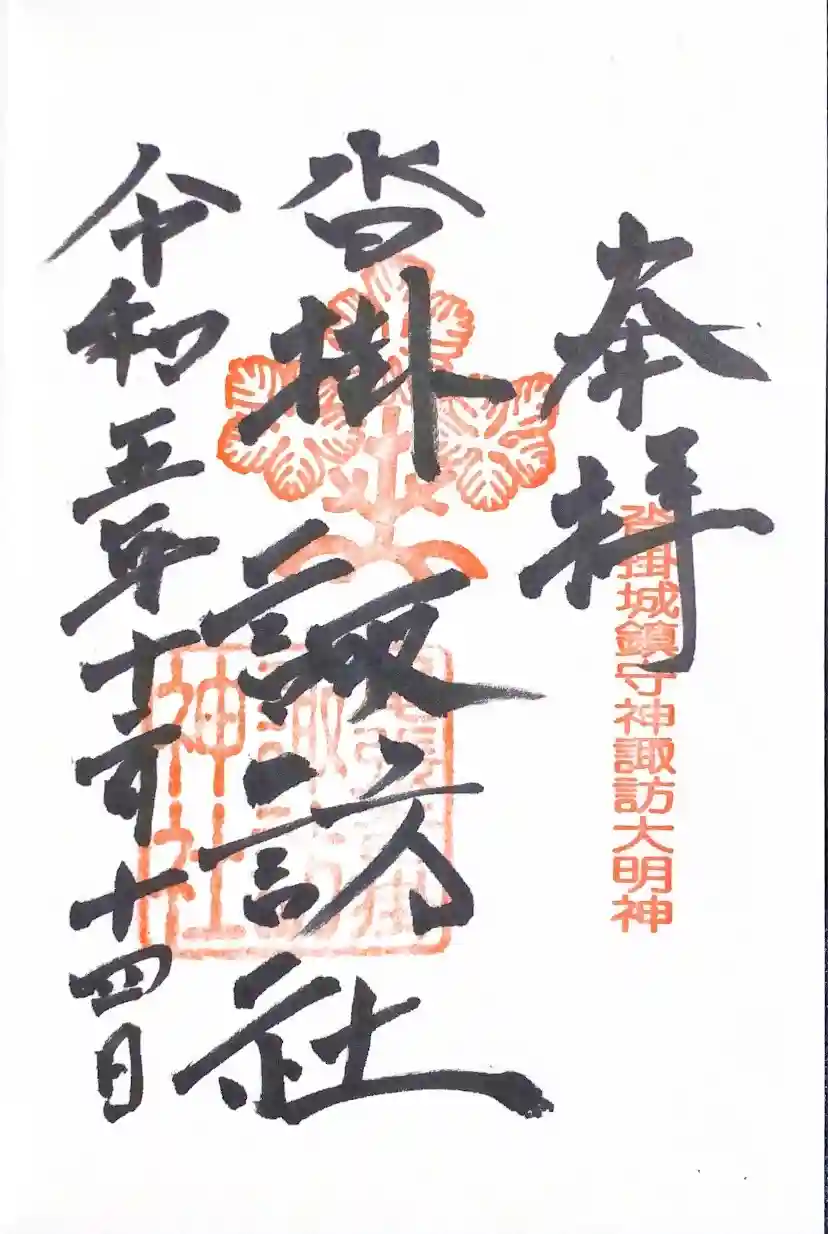 奉拝
沓掛城鎮守神諏訪大明神
沓掛諏訪社
諏訪
神社
令和五年十一月十四日